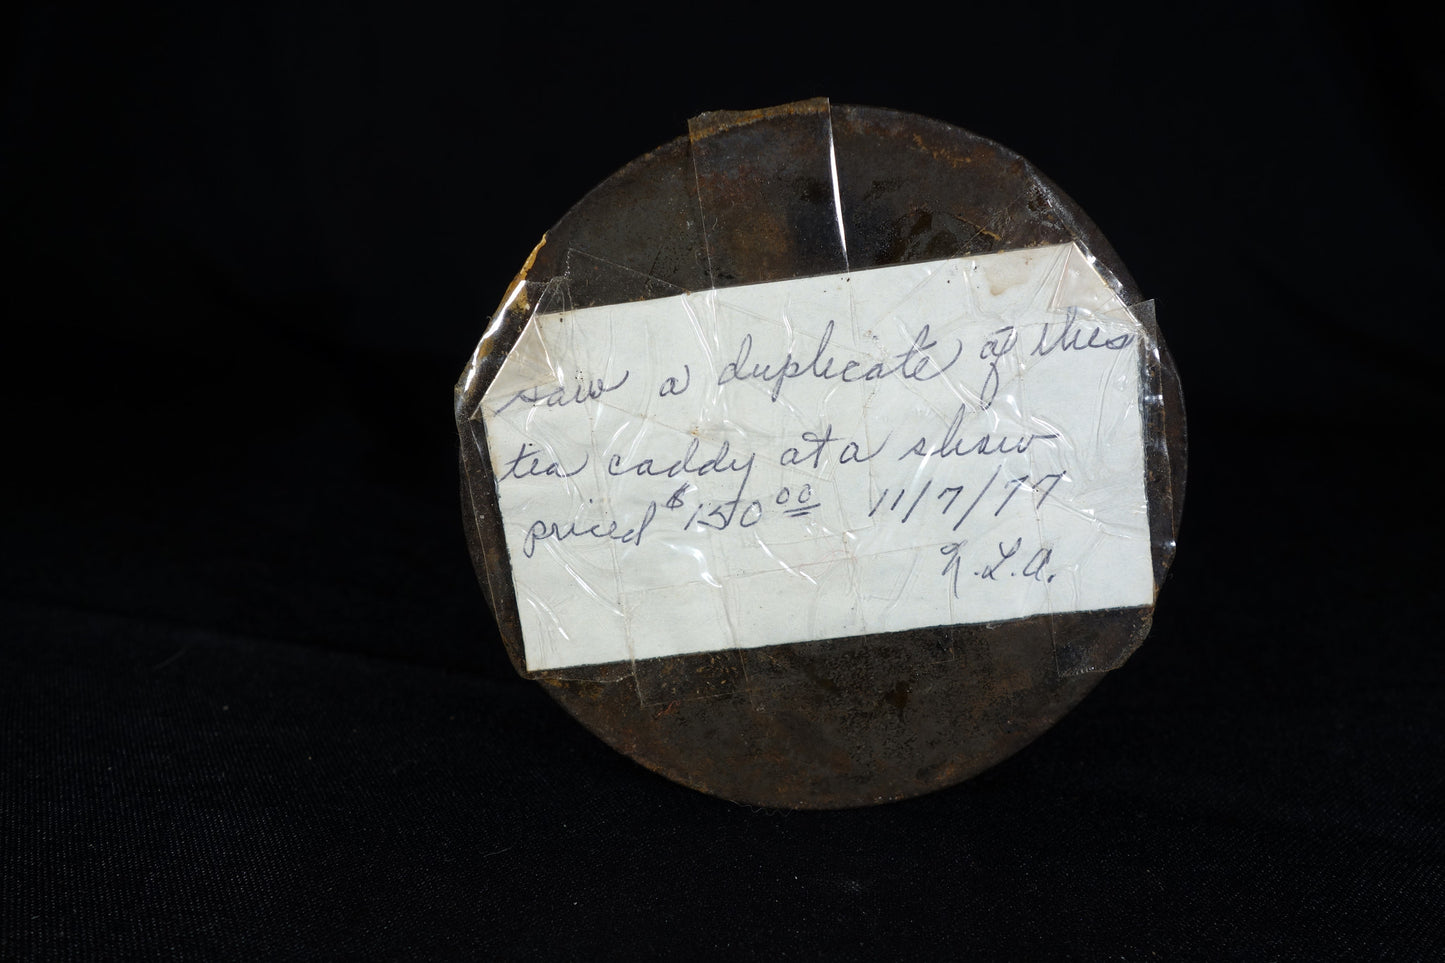 saw a duplicate of this
tea caddy at a show
priced $150.00 11/7/77
N.L.A.